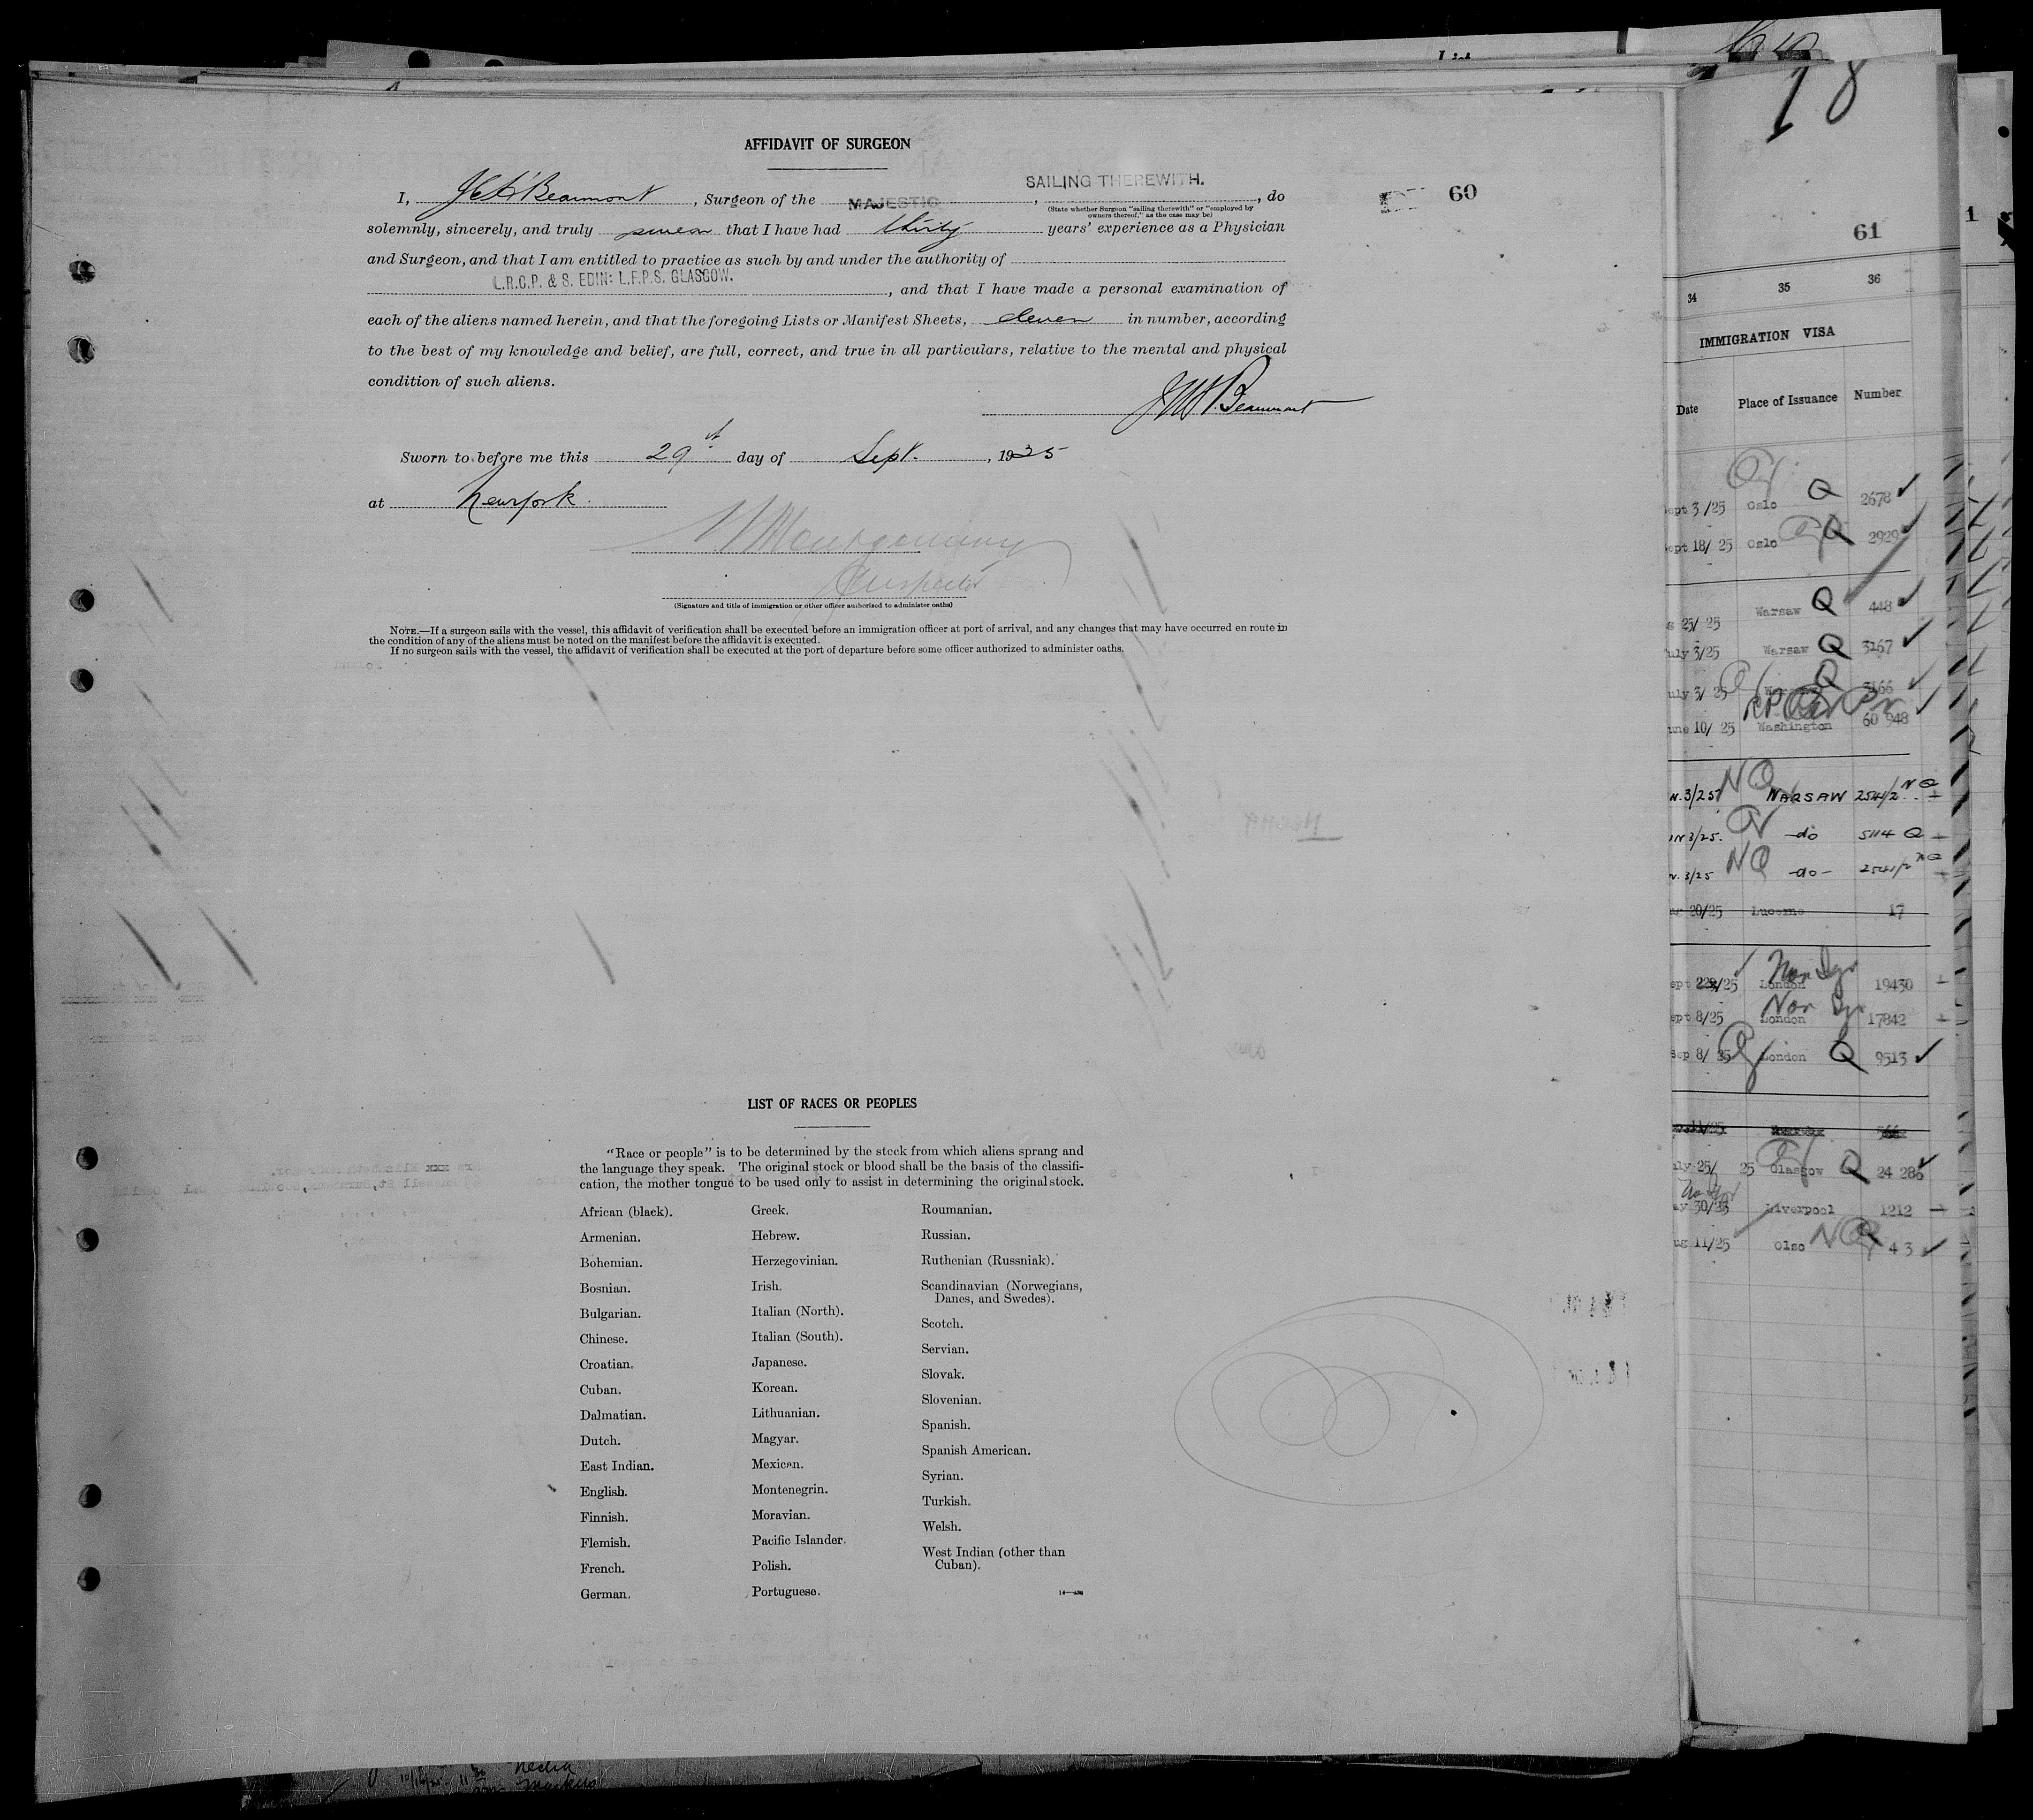 AFFIDAVIT OF SURGEON
SAILING THEREWITH.
I, Beaumont, Surgeon of the MAJESTIC, do
(State whether Surgeon "sailing therewith" or "employed by
owners thereof," as the case may be)
60
solemnly, sincerely, and truly swear that I have had thirty years' experience as a Physician
and Surgeon, and that I am entitled to practice as such by and under the authority of
L.R.C.P. & S. EDIN: L.F.P.S. GLASGOW.
, and that I have made a personal examination of
each of the aliens named herein, and that the foregoing Lists or Manifest Sheets, eleven in number, according
to the best of my knowledge and belief, are full, correct, and true in all particulars, relative to the mental and physical
condition of such aliens.
Beaumont
Sworn to before me this 29 day of Sept., 1925
at New York.
Montgomery
Inspector
(Signature and title of immigration or other officer authorized to administer oaths)
NOTE.—If a surgeon sails with the vessel, this affidavit of verification shall be executed before an immigration officer at port of arrival, and any changes that may have occurred en route in
the condition of any of the aliens must be noted on the manifest before the affidavit is executed.
If no surgeon sails with the vessel, the affidavit of verification shall be executed at the port of departure before some officer authorized to administer oaths.
LIST OF RACES OR PEOPLES
"Race or people" is to be determined by the stock from which aliens sprang and
the language they speak. The original stock or blood shall be the basis of the classifi-
cation, the mother tongue to be used only to assist in determining the original stock.
African (black).
Armenian.
Bohemian.
Bosnian.
Bulgarian.
Chinese.
Croatian.
Cuban.
Dalmatian.
Dutch.
East Indian.
English.
Finnish.
Flemish.
French.
German.
Greek.
Hebrew.
Herzegovinian.
Irish.
Italian (North).
Italian (South).
Japanese.
Korean.
Lithuanian.
Magyar.
Mexican.
Montenegrin.
Moravian.
Pacific Islander.
Polish.
Portuguese.
Roumanian.
Russian.
Ruthenian (Russniak).
Scandinavian (Norwegians,
Danes, and Swedes).
Scotch.
Servian.
Slovak.
Slovenian.
Spanish.
Spanish American.
Syrian.
Turkish.
Welsh.
West Indian (other than
Cuban).
18
61
1
34 35 36
IMMIGRATION VISA
Date Place of Issuance Number
ept 3/25 Oslo Q 2678
ept 18/25 Oslo Q 2929
25/25 Warsaw Q 448
uly 3/25 Warsaw Q 3167
uly 3/25 Q 3166
une 10/25 Washington 60 948
N. 3/25 NQ WARSAW 2541/2 NQ
N 3/25. -do 5114 Q
N. 3/25 NQ -do- 2541/2 NQ
20/25 Lucerne 17
ept 25 London 19430
ept 8/25 London 17842
Sep 8/25 London Q 9513
uly 25/25 Glasgow Q 24 286
ay 30/25 Liverpool 1212
ug 11/25 Olso NQ 43